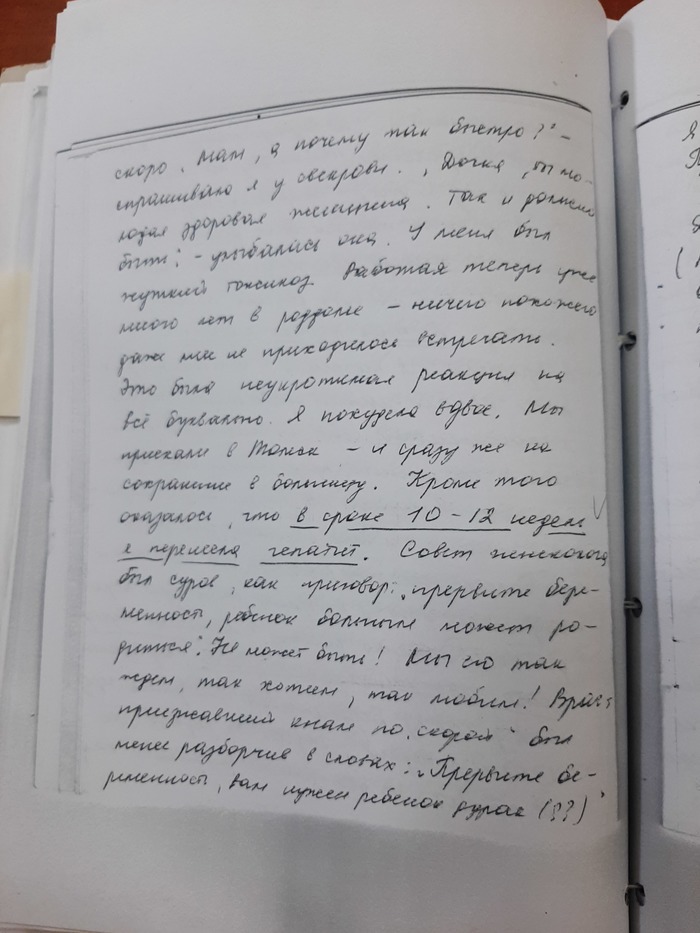 скоро. Мам, а почему так быстро?" –
спрашиваю я у свекрови. „Дочка, ты мо-
лодая здоровая женщина. Так и должно
быть", – улыбалась она. У меня был
жуткий токсикоз. Работая теперь уже
много лет в роддоме – ничего похожего
даже мне не приходилось встречать.
Это была неукротимая реакция на
всё буквально. Я похудела вдвое. Мы
приехали в Томск – и сразу же на
сохранение в больницу. Кроме того
оказалось, что в сроке 10–12 недель
я перенесла гепатит. Совет
был суров, как приговор: „прервите бере-
менность, ребёнок больным может ро-
диться". Не может быть! Мы его так
ждем, так хотим, так любим! Врач
приезжавший к нам по „скорой" был
менее разборчив в словах: „Прервите бе-
ременность, вам нужен ребенок дурак (??)"
Я
(